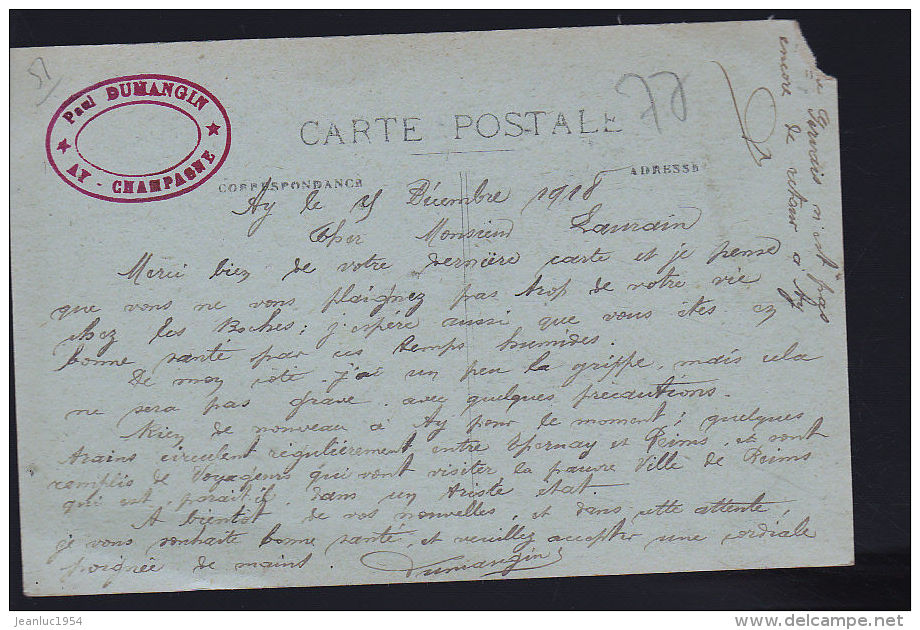 57
Paul DUMANGIN
AY - CHAMPAGNE
77
CARTE POSTALE
CORRESPONDANCE
ADRESSE
Ay le 15 Décembre 1918
Cher Monsieur Laurain
Merci bien de votre dernière carte et je pense
que vous ne vous plaignez pas trop de votre vie
chez les Boches ; j'espère aussi que vous êtes en
bonne santé par ces temps humides.
De mon côté j'ai un peu la grippe, mais cela
ne sera pas grave avec quelques précautions.
Rien de nouveau à Ay pour le moment ; quelques
trains circulent régulièrement entre Epernay et Reims, et sont
remplis de voyageurs qui vont visiter la pauvre Ville de Reims
qui est, parait-il, dans un triste état.
A bientôt de vos nouvelles, et dans cette attente,
je vous souhaite bonne santé, et veuillez accepter une cordiale
poignée de main.
Dumangin
Gervais n'est pas
encore de retour à Ay
jeanluc1954
delcampe.net